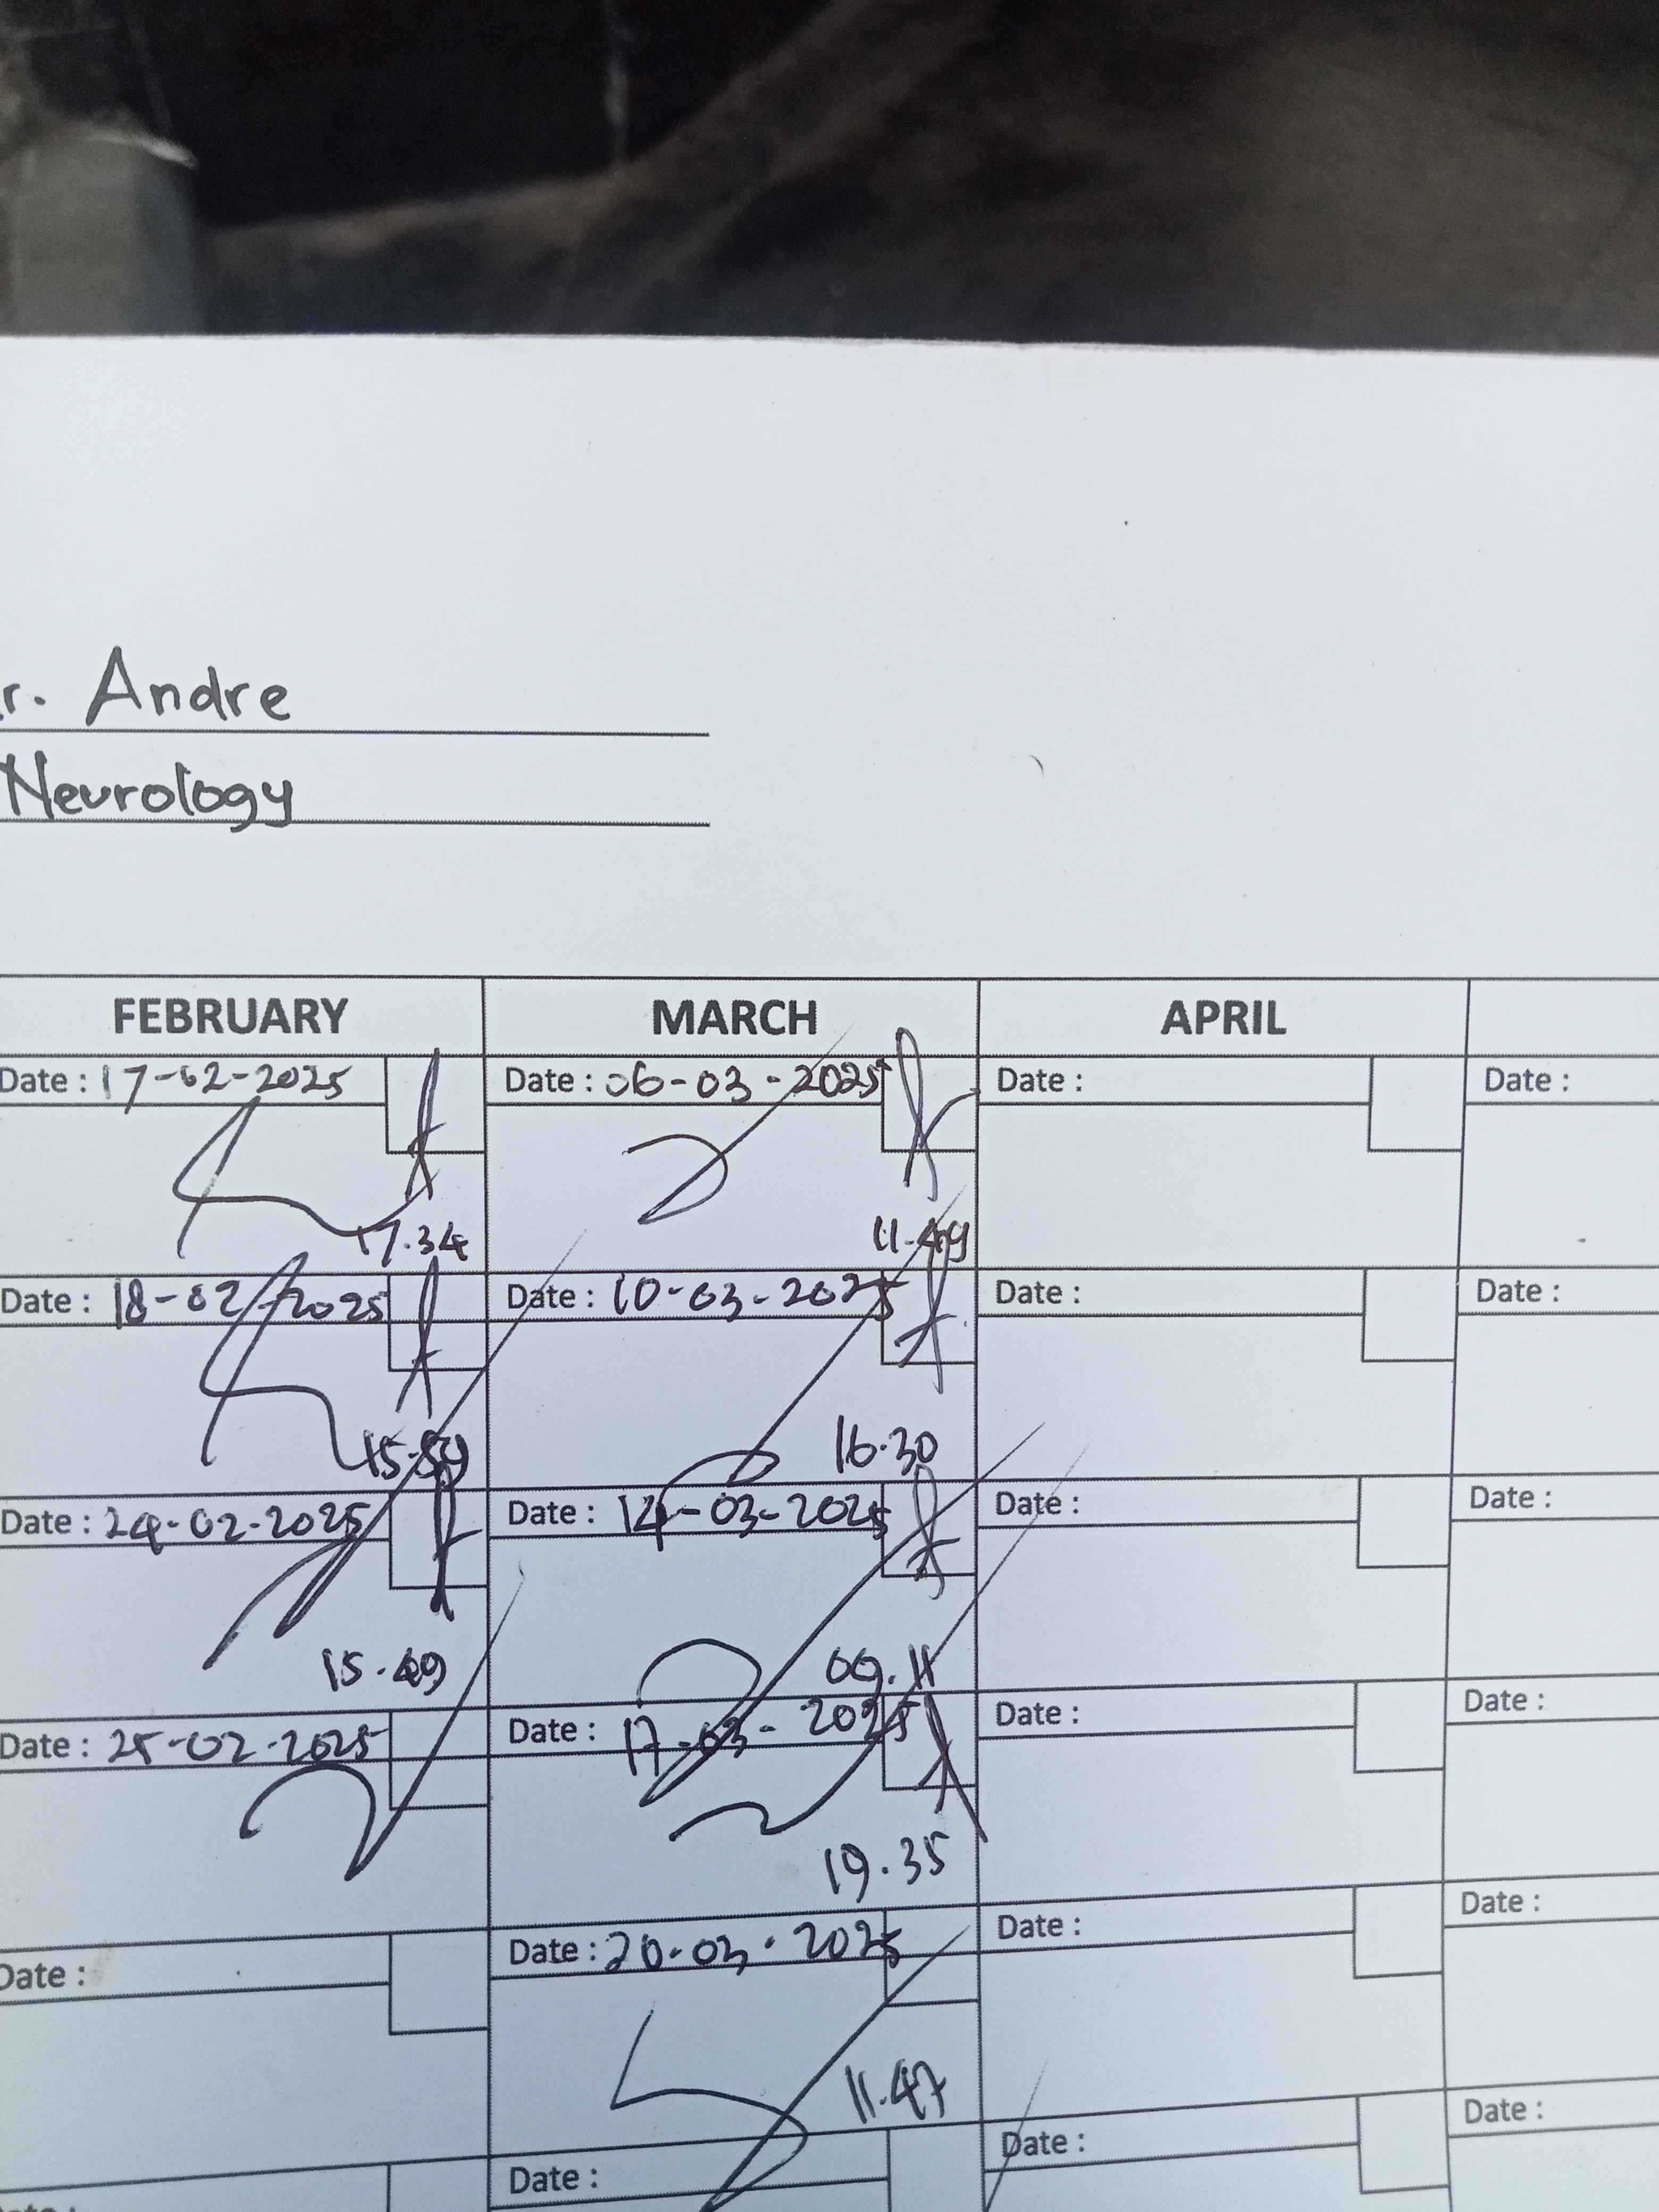 r. Andre
Neurology
FEBRUARY MARCH APRIL
Date : 17-02-2025 Date : 06-03-2025 Date : Date :
17.34 11.49
Date : 18-02-2025 Date : 10-03-2025 Date : Date :
16.30
Date : 24-02-2025 Date : 14-03-2025 Date : Date :
15.49 09.11
Date : 25-02-2025 Date : 17-03-2025 Date : Date :
19.35
Date : Date : 20-03-2025 Date : Date :
11.47
Date : Date : Date :